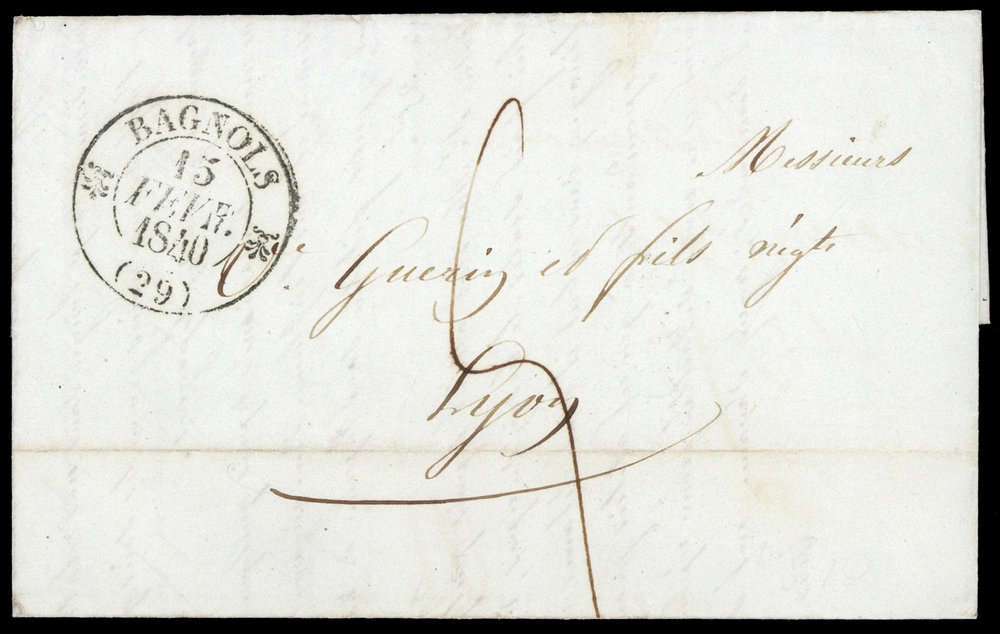 BAGNOLS
15
FEVR.
1840
(29)
Messieurs
Guerin et fils négts
Lyon